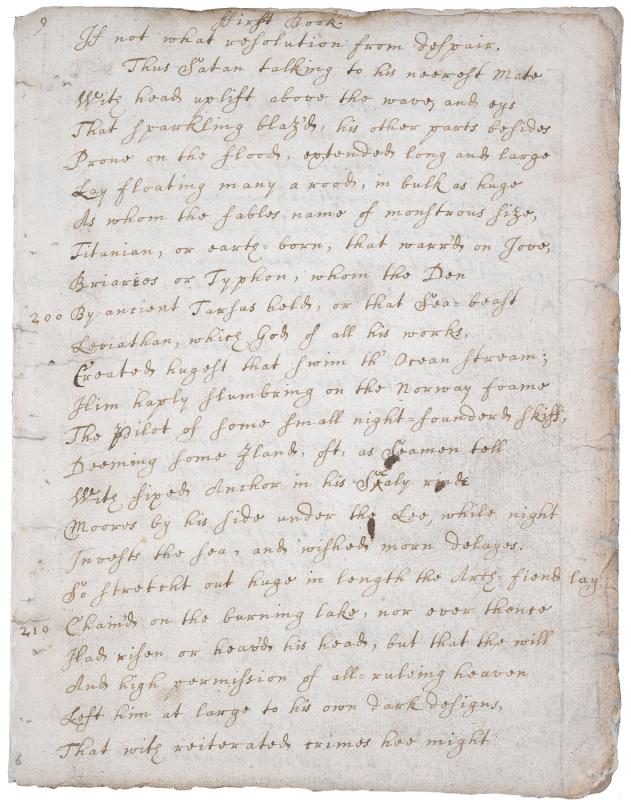 9
First Book.
If not what resolution from despair.
Thus Satan talking to his neerest Mate
With head uplift above the wave, and eys
That sparkling blaz'd, his other parts besides
Prone on the flood, extended long and large
Lay floating many a rood, in bulk as huge
As whom the fables name of monstrous size,
Titanian, or earth-born, that warr'd on Jove,
Briareos or Typhon, whom the Den
200 By ancient Tarsus held, or that Sea-beast
Leviathan, which God of all his works,
Created hugest that swim th' Ocean stream;
Him haply slumbring on the Norway foame
The Pilot of some small night-founderd skiff,
Deeming some Iland, oft, as Seamen tell
With fixed Anchor in his Scaly rinde
Moores by his side under the Lee, while night
Invests the sea, and wished morn delayes.
So stretcht out huge in length the Arch-fiend lay
210 Chain'd on the burning lake, nor ever thence
Had risen or heav'd his head, but that the will
And high permission of all-ruleing heaven
Left him at large to his own dark designs,
That with reiterated crimes hee might
6